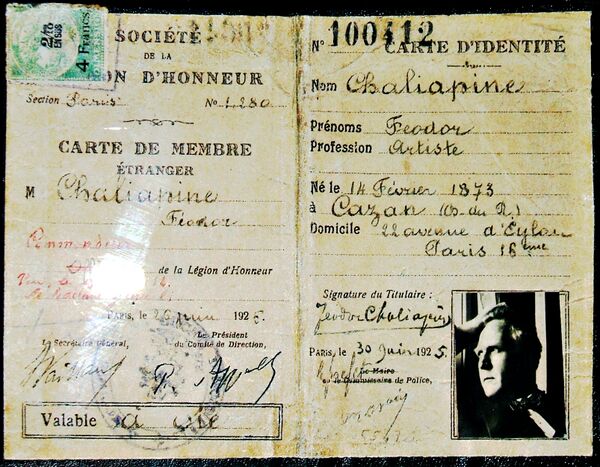 4 Francs
SOCIÉTÉ
DE LA
ON D'HONNEUR
Section Paris No 1.280
CARTE DE MEMBRE
ÉTRANGER
M Chaliapine
Féodor
de la Légion d'Honneur
PARIS, le 26 juin 1925.
Le Secrétaire Général,
Le Président
du Comité de Direction,
Valable à vie
No 100412
CARTE D'IDENTITÉ
Nom Chaliapine
Prénoms Feodor
Profession Artiste
Né le 14 Février 1873
à Cazan (Gs du R.)
Domicile 22 avenue d'Eylau
Paris 16ème
Signature du Titulaire :
Feodor Chaliapine
PARIS, le 30 juin 1925.
Le Maire
de Police,